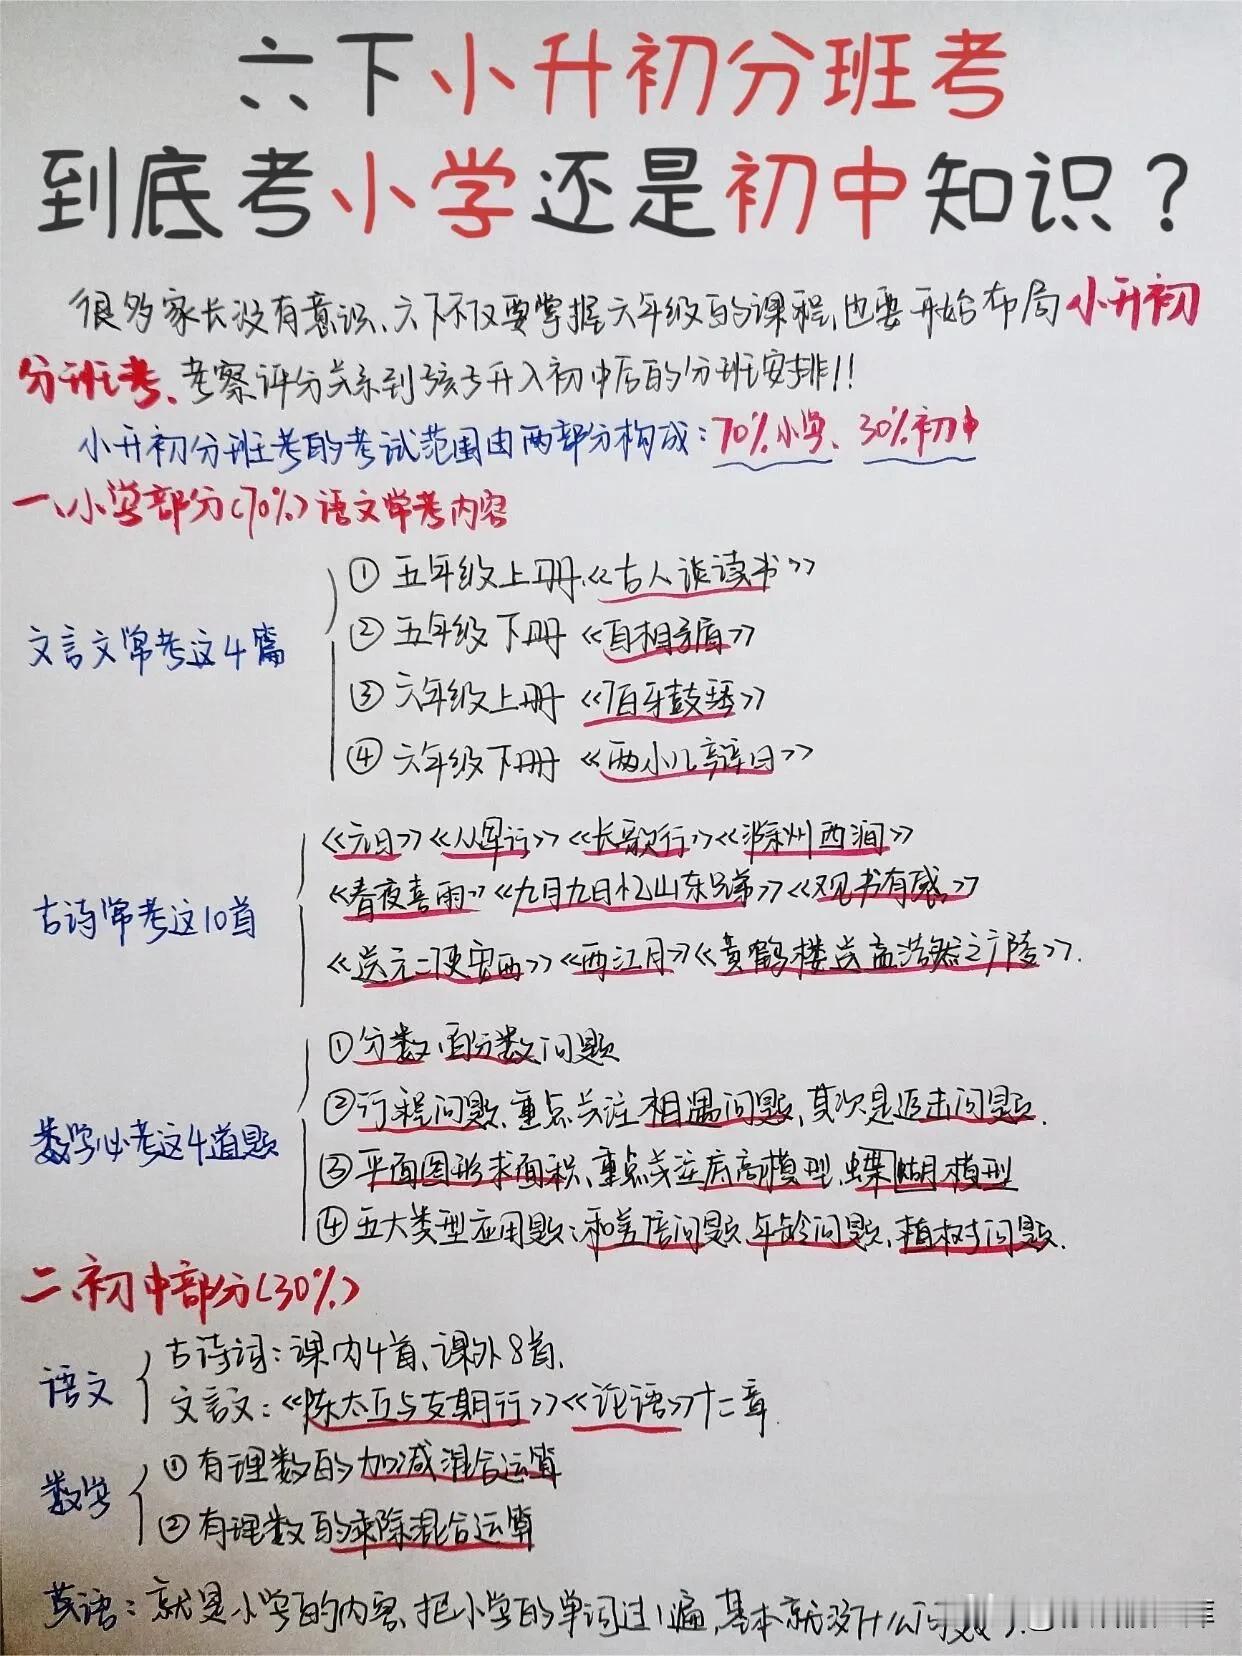 六下小升初分班考
到底考小学还是初中知识？
很多家长没有意识、六下不仅要掌握六年级的课程,也要开始布局小升初
分班考、考察评分关系到孩子升入初中后的分班安排!!
小升初分班考的考试范围由两部分构成:70%小学、30%初中
一、小学部分(70%)语文常考内容
文言文常考这4篇
①五年级上册《古人谈读书》
②五年级下册《自相矛盾》
③六年级上册《伯牙鼓琴》
④六年级下册《两小儿辩日》
古诗常考这10首
《元日》《从军行》《长歌行》《滁州西涧》
《春夜喜雨》《九月九日忆山东兄弟》《观书有感》
《送元二使安西》《西江月》《黄鹤楼送孟浩然之广陵》.
数学必考这4道题
①分数、百分数问题
②行程问题、重点关注相遇问题、其次是追击问题.
③平面图形求面积、重点关注底高模型、蝴蝶模型
④五大类型应用题:和差倍问题、年龄问题、植树问题.
二、初中部分(30%)
语文
古诗词:课内4首、课外8首.
文言文:《陈太丘与友期行》《论语》十二章
数学
①有理数的加减混合运算
②有理数的乘除混合运算
英语:就是小学的内容、把小学的单词过1遍,基本就没什么问